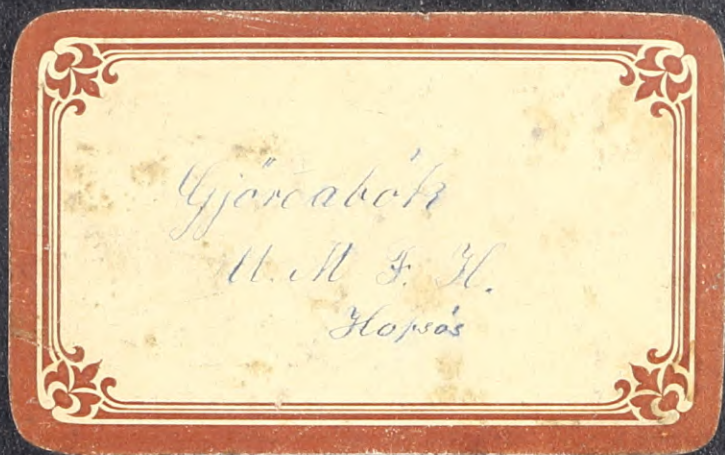 Gjörðabók
U. M. F. H.
Hofsós